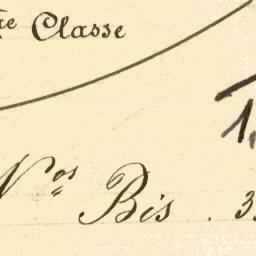 re Classe
1
Nos Bis . 3